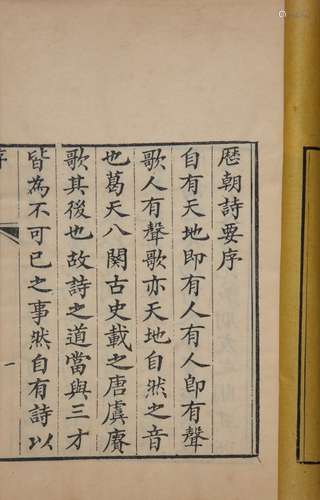 歴朝詩要序
自有天地即有人有人即有聲
歌人有聲歌亦天地自然之音
也葛天八闋古史載之唐虞賡
歌其後也故詩之道當與三才
皆為不可已之事然自有詩以
序
一